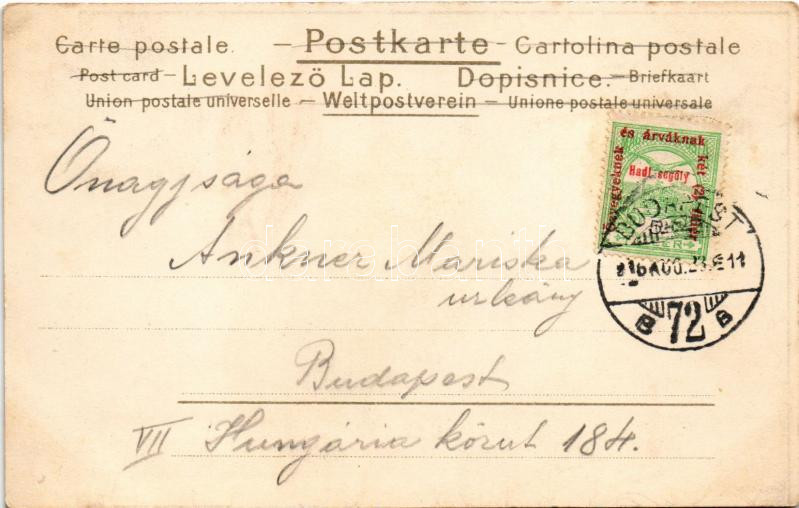 Carte postale. — Postkarte — Cartolina postale
Post card — Levelező Lap. Dopisnice. — Briefkaart
Union postale universelle — Weltpostverein — Unione postale universale
özvegyeknek és árváknak két (2) fillér
Hadi segély
Önagysága
Ankner Mariska
urleány
Budapest
VII Hungária körut 184.
BUDAPEST
72
B B